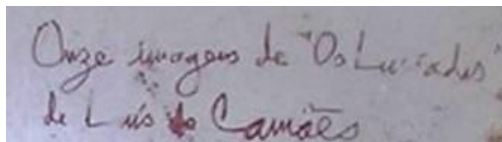 Onze imagens de "Os Lusíadas"
de Luís de Camões